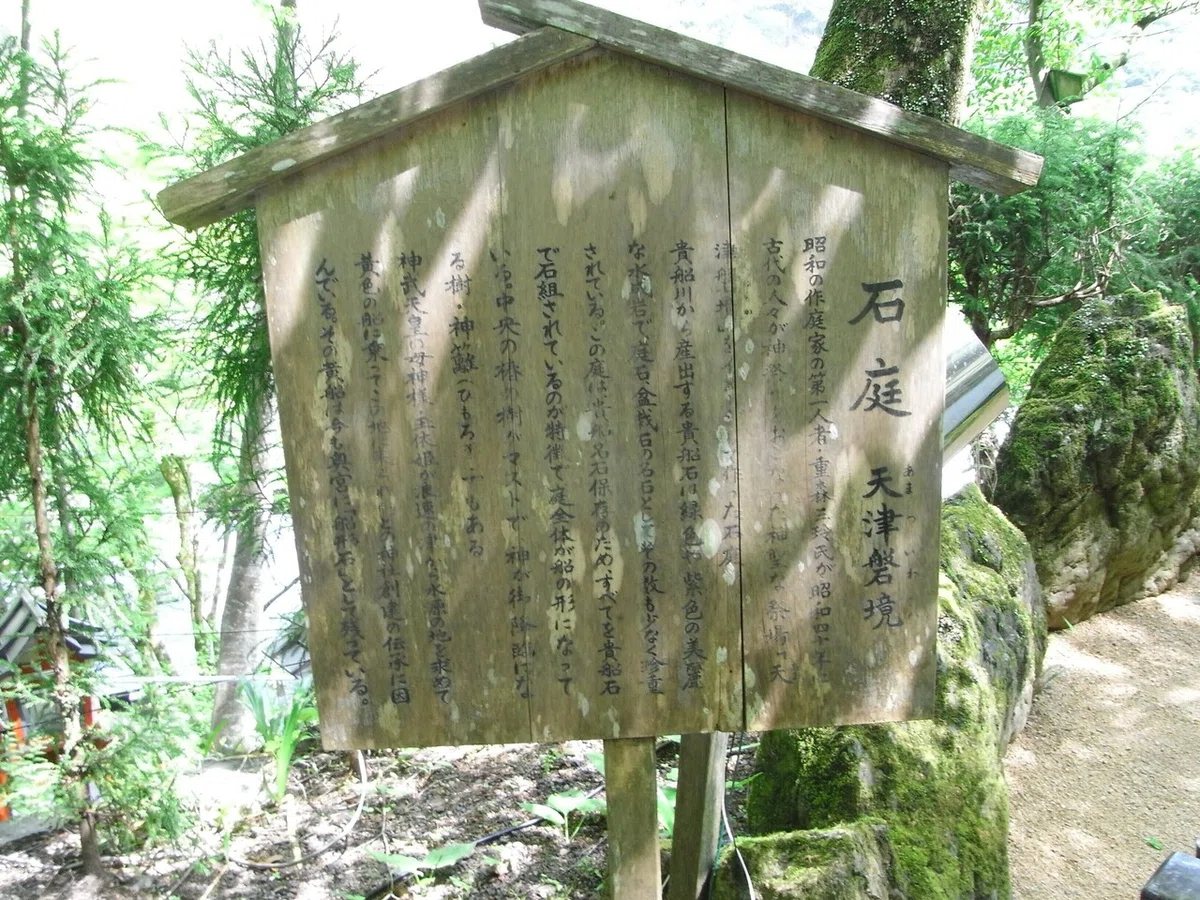 石庭 天津磐境
あまついわ
昭和の作庭家の第一人者・重森三玲氏が昭和四十年に
古代の人々が神祭りをおこなった神聖な祭場「天
津磐境
貴船川から産出する貴船石は緑色や紫色の美麗
な水成岩で庭石、盆栽石の名石としてその数も少なく珍重
されている。この庭は貴船名石保存のため、すべてを貴船石
で石組されているのが特徴で庭全体が船の形になって
いる。中央の椿の樹がマストで神が御降臨にな
る樹・神籬(ひもろぎ)でもある
神武天皇の母神様・玉依姫が浪速 から水源の地を求めて
黄色の船に乗ってこの地に来られたと 神社創建の伝承に因
んでいる。その黄船は今も奥宮に「船形石」として残っている。